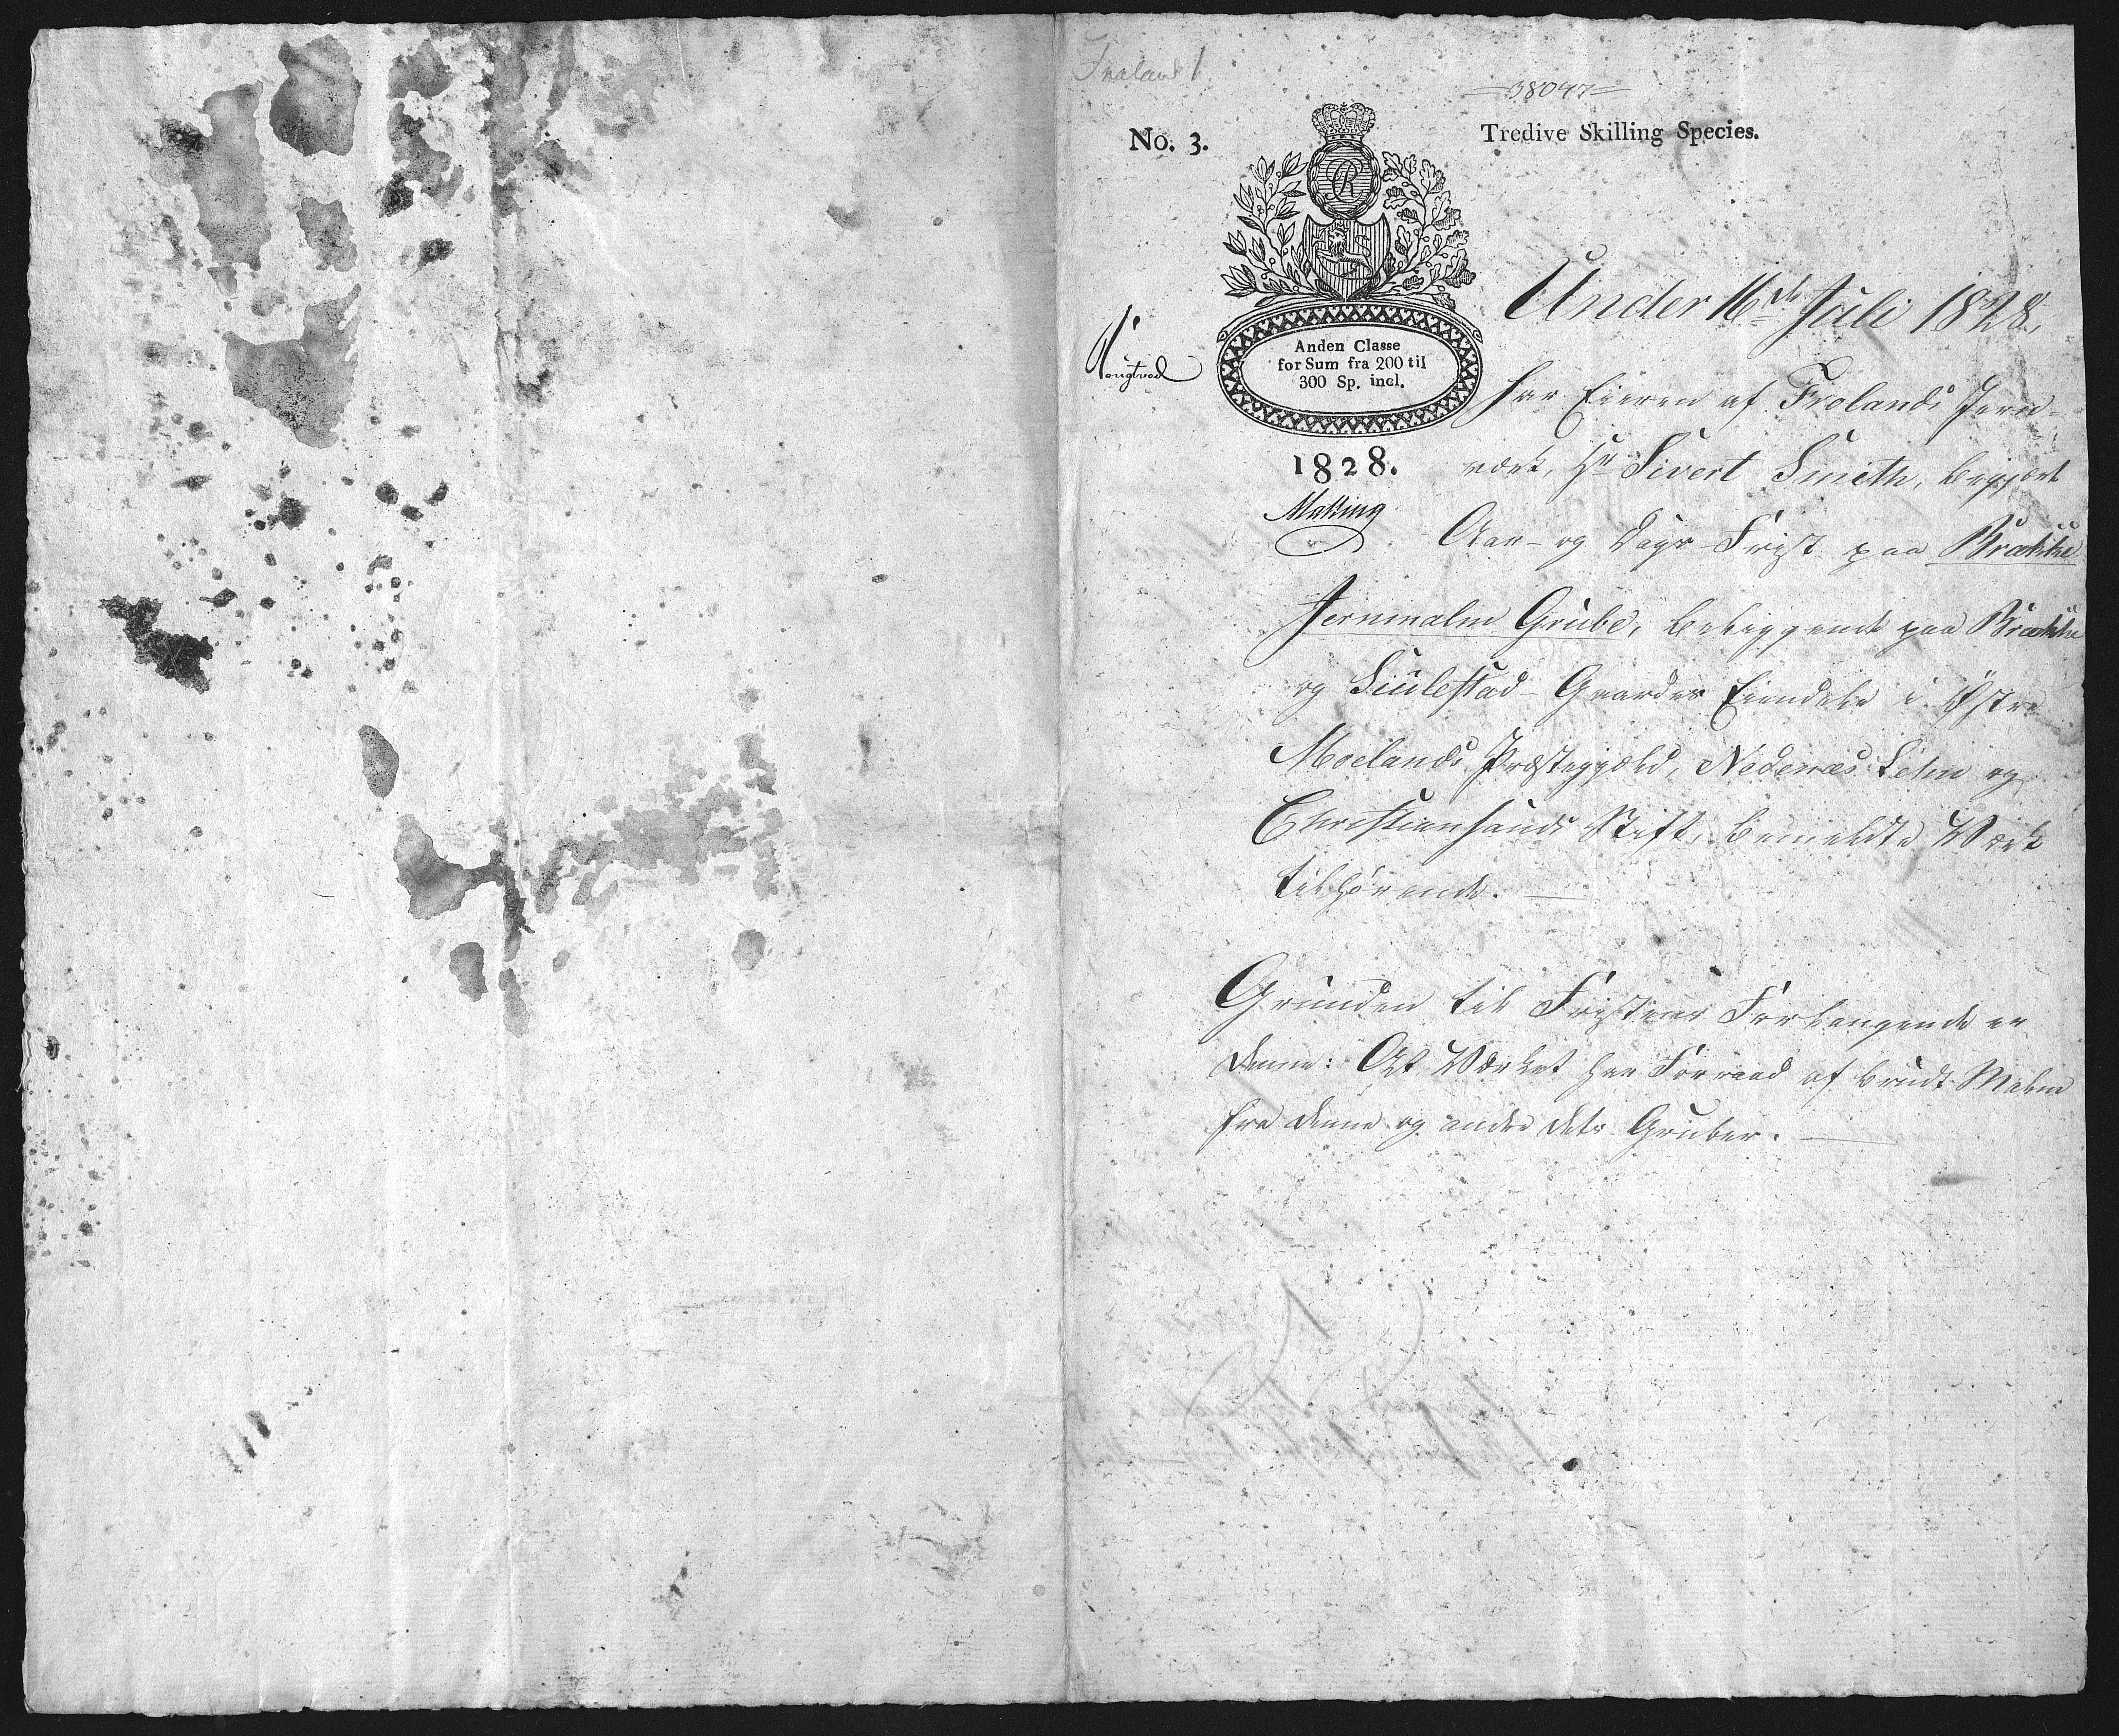 Froland 1.
38097
No. 3.
Tredive Skilling Species.
Anden Classe
for Sum fra 200 til
300 Sp. incl.
1828.
Under 16de Juli 1828,
har Eieren af Frolands Jern-
værk, Hr Sivert Smith, begjært
Aar- og Dags-Frist paa Brække
Jernmalm Grube, beliggende paa Brække
og Suulestad-Gaardes Eiendele i Østre
Moelands Præstegjæld, Nedenæs Lehn og
Christiansands Stift, bemeldte Værk
tilhørende.
Grunden til Fristens Forlangende er
denne: At Værket har Forraad af brudt Malm
fra denne og andre dets Gruber.